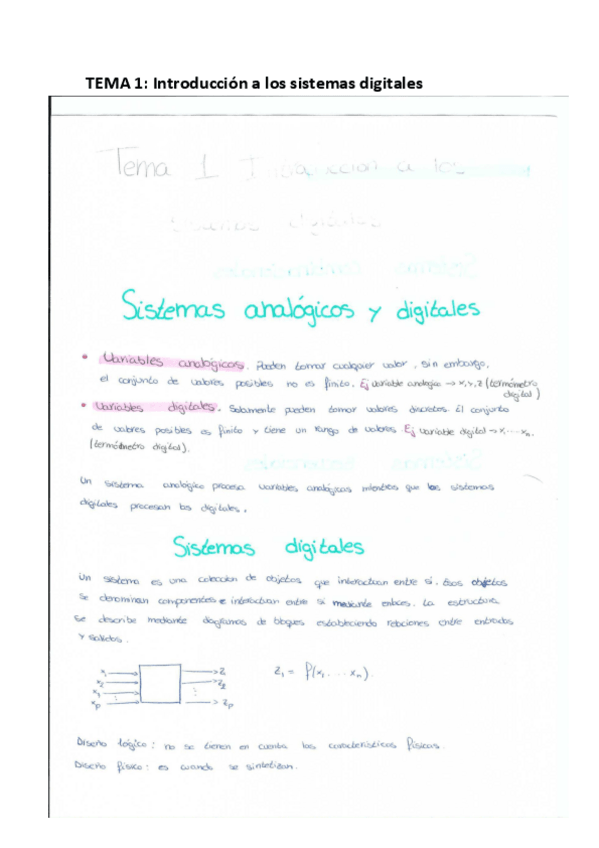 TEMA 1: Introducción a los sistemas digitales
Tema 1 Introducción a los
sistemas digitales
Sistemas analógicos y digitales
• Variables analógicas. Pueden tomar cualquier valor, sin embargo,
el conjunto de valores posibles no es finito. Ej variable analógica → x, y, z (termómetro
digital)
• Variables digitales. Solamente pueden tomar valores discretos. El conjunto
de valores posibles es finito y tiene un rango de valores. Ej variable digital → x,...xn.
(termómetro digital).
Un sistema analógico procesa variables analógicas mientras que los sistemas
digitales procesan las digitales.
Sistemas digitales
Un sistema es una colección de objetos que interactúan entre sí. Esos objetos
se denominan componentes e interactúan entre sí mediante enlaces. La estructura
se describe mediante diagramas de bloques estableciendo relaciones entre entradas
y salidas.
x1 z1
x2 z2
xp zp
z1 = f(x1, ... xn).
Diseño lógico: no se tienen en cuenta las características físicas.
Diseño físico: es cuando se sintetizan.